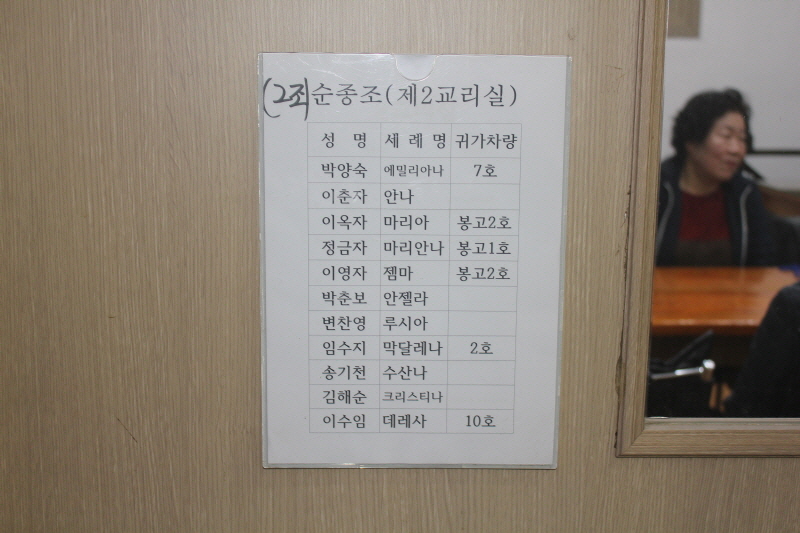 (2조) 순종조(제2교리실)
성 명 세 례 명 귀가차량
박양숙 에밀리아나 7호
이춘자 안나
이옥자 마리아 봉고2호
정금자 마리안나 봉고1호
이영자 젬마 봉고2호
박춘보 안젤라
변찬영 루시아
임수지 막달레나 2호
송기천 수산나
김해순 크리스티나
이수임 데레사 10호